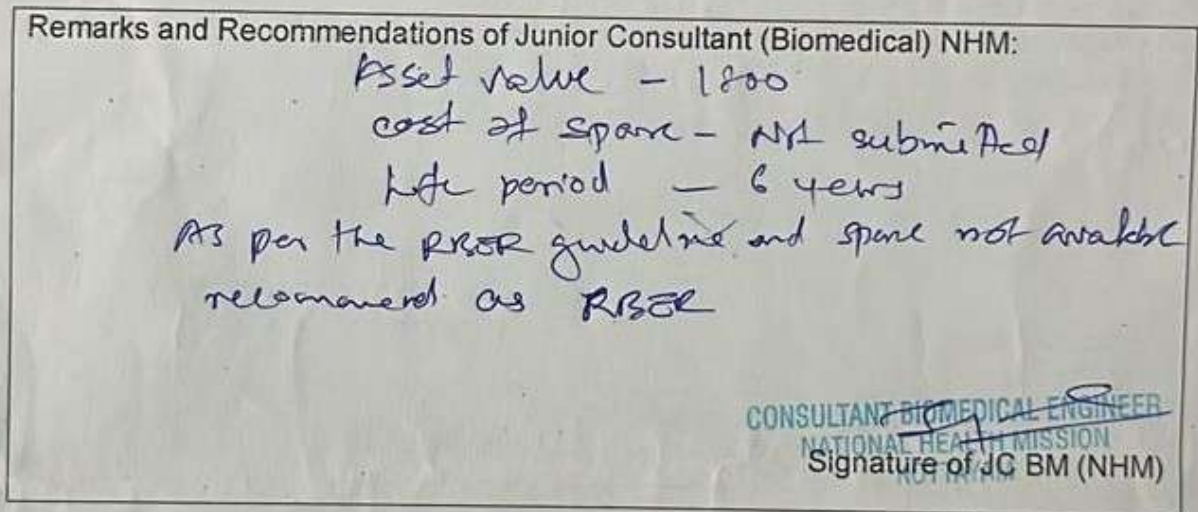 Remarks and Recommendations of Junior Consultant (Biomedical) NHM:
Asset value - 1800
cost of spare - Not submitted
Life period - 6 years
As per the RBER guideline and spare not available
recommend as RBER
CONSULTANT BIOMEDICAL ENGINEER
NATIONAL HEALTH MISSION
Signature of JC BM (NHM)